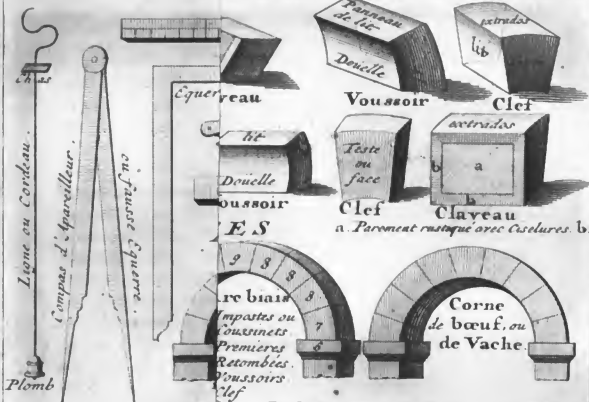 Chas
Ligne ou Cordeau.
Plomb
Compas d'Apareilleur.
ou fausse Equerre.
a
Equer
veau
Panneau
de lit
Douelle
Voussoir
extrados
lit
Clef
lit
Douelle
oussoir
Teste
ou
face
Clef
extrados
b
a
b
Claveau
a. Parement rustique avec Ciselures. b.
ES
9 8 8 8 7 6
rc biais
Impostes ou
Coussinets.
Premieres
Retombées.
Voussoirs
Clef
Corne
de bœuf, ou
de Vache.